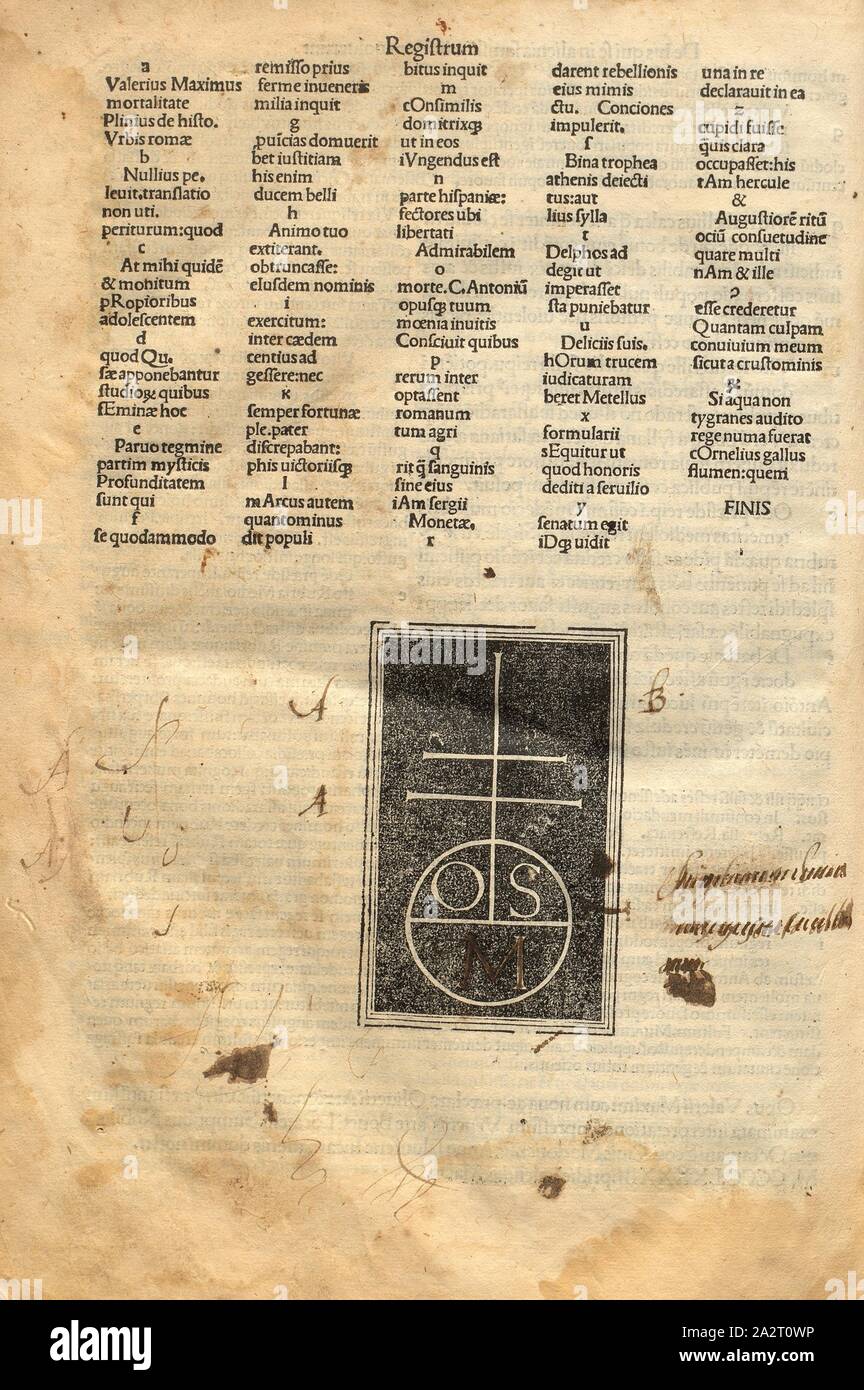 Registrum
a
Valerius Maximus
mortalitate
Plinius de histo.
Vrbis romæ
b
Nullius pe.
leuit.translatio
non uti.
periturum:quod
c
At mihi quidē
& monitum
pRopioribus
adolescentem
d
quod Qu.
sæ apponebantur
studioqꝫ quibus
sEminæ hoc
e
Paruo tegmine
partim mysticis
Profunditatem
sunt qui
f
se quodammodo
remisso prius
ferme inueneris
milia inquit
g
ꝓuicias domuerit
bet iustitiam
his enim
ducem belli
h
Animo tuo
extiterant.
obtruncasse:
eiusdem nominis
i
exercitum:
inter cædem
centius ad
gessere:nec
K
semper fortunæ
ple.pater
discrepabant:
phis uictoriisqꝫ
l
mArcus autem
quantominus
dit populi
bitus inquit
m
cOnsimilis
domitrixqꝫ
ut in eos
iVngendus est
n
parte hispaniæ:
sectores ubi
libertati
Admirabilem
o
morte.C.Antoniū
opusqꝫ tuum
mœnia inuitis
Consciuit quibus
p
rerum inter
optassent
romanum
tum agri
q
rit q̄ sanguinis
sine eius
iAm sergii
Monetæ.
r
darent rebellionis
eius mimis
ctu. Conciones
impulerit.
ſ
Bina trophea
athenis deiecti
tus:aut
lius sylla
t
Delphos ad
degit ut
imperasset
sta puniebatur
u
Deliciis suis.
hOrum trucem
iudicaturam
beret Metellus
x
formularii
sEquitur ut
quod honoris
dediti a seruilio
y
senatum egit
iDqꝫ uidit
una in re
declarauit in ea
z
cupidi fuisse
q̄uis clara
occupasset:his
tAm hercule
&
Augustiorē ritū
ociū consuetudine
quare multi
nAm & ille
ꝯ
esse crederetur
Quantam culpam
conuiuium meum
sicut a crustominis
ꝝ
Si aqua non
tygranes audito
rege numa fuerat
cOrnelius gallus
flumen:quem
FINIS
A
B
A
O S
M
alamy
Image ID: A2T0WP
www.alamy.com